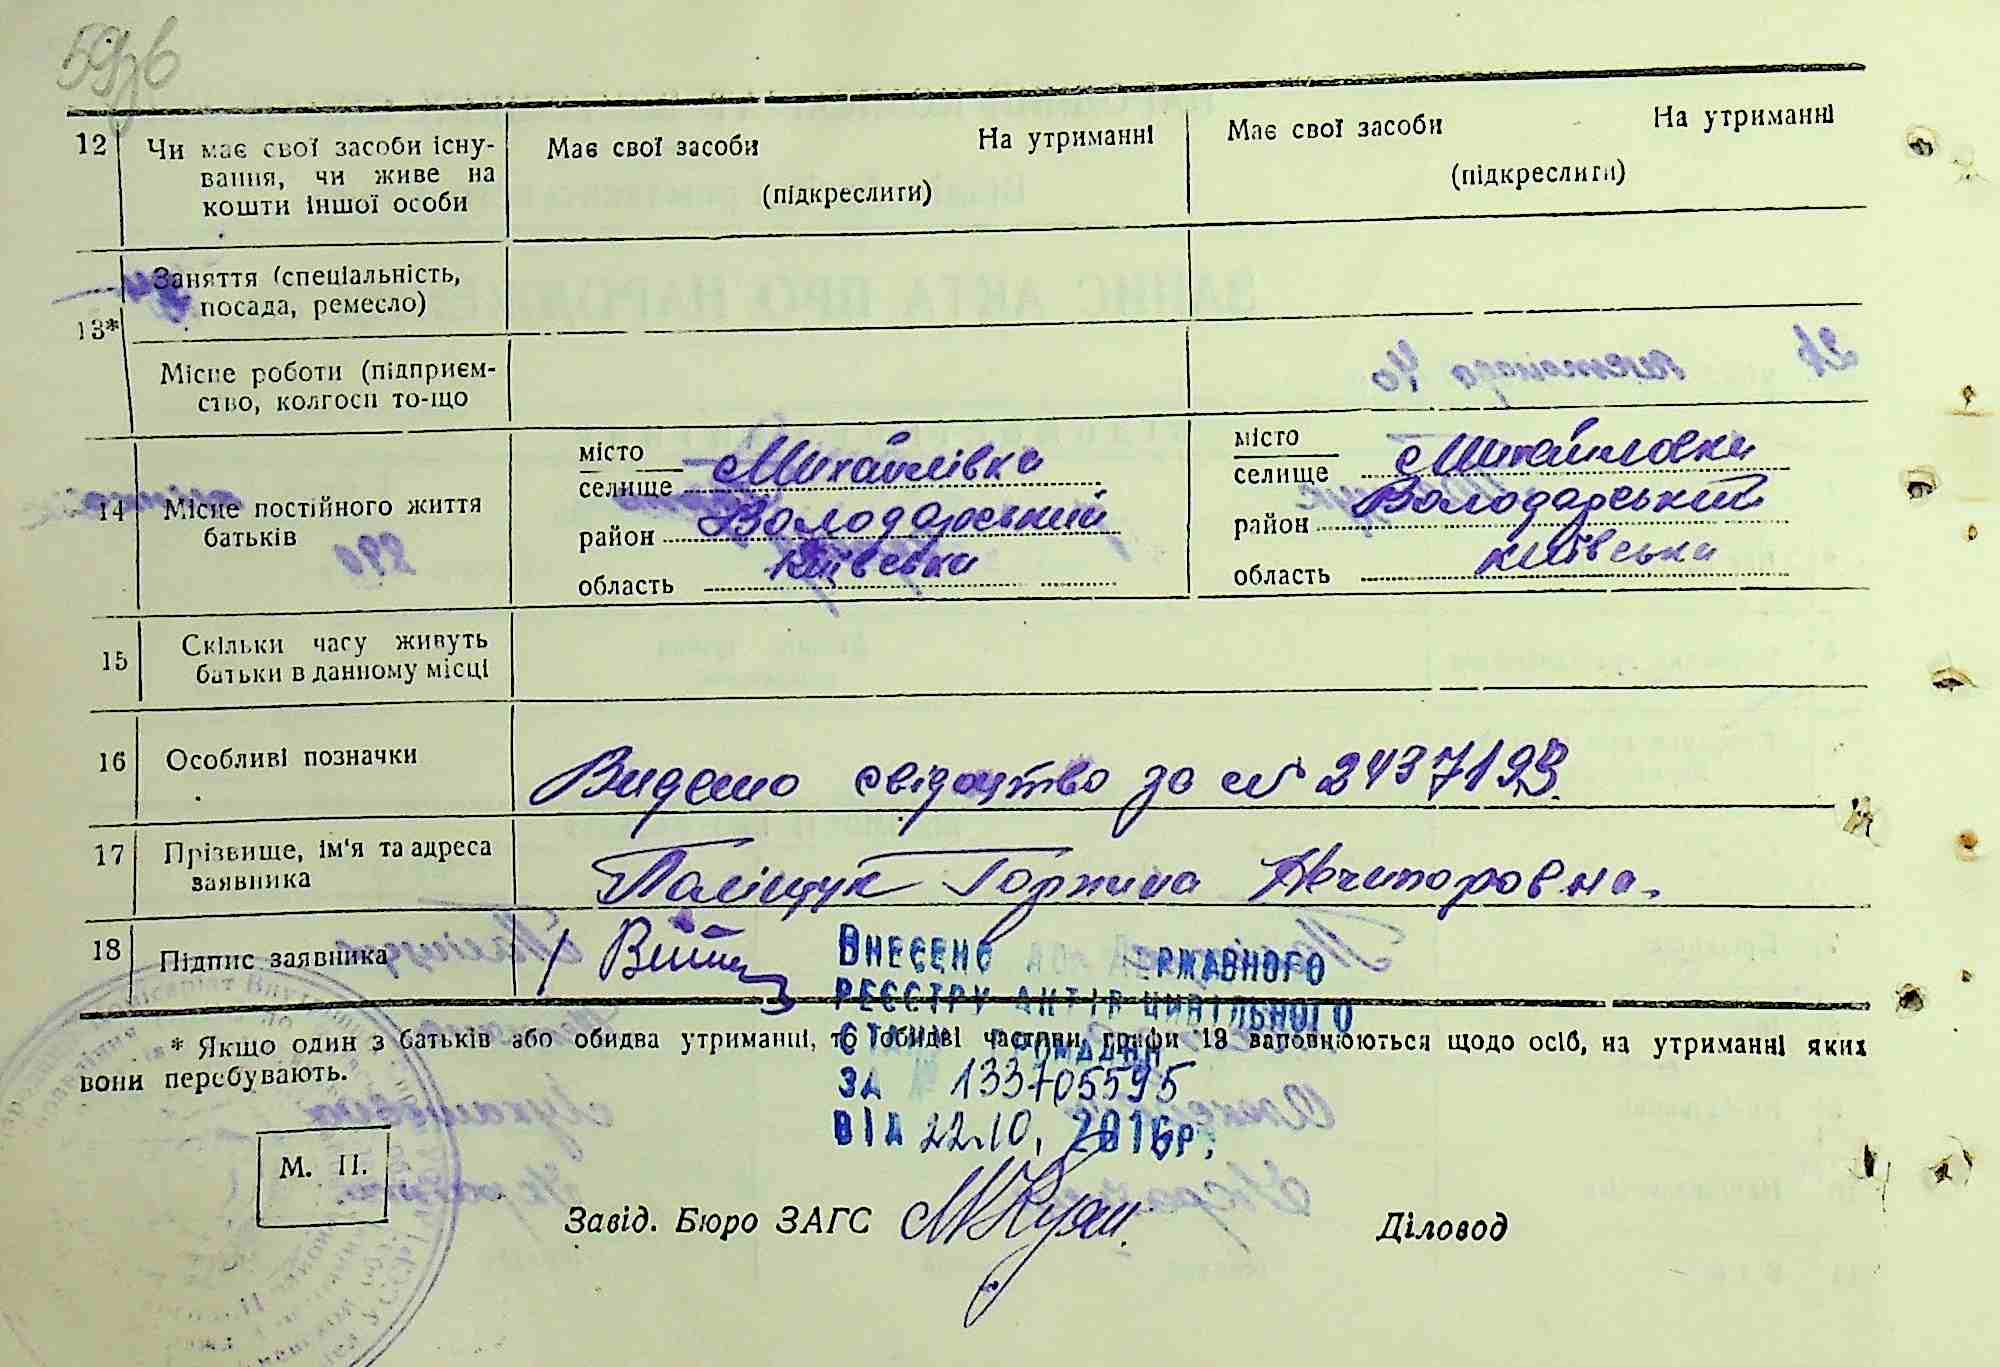 12 Чи має свої засоби існу-
вання, чи живе на
кошти іншої особи
Має свої засоби На утриманні
(підкреслити)
Має свої засоби На утриманні
(підкреслити)
13*
Заняття (спеціальність,
посада, ремесло)
Місце роботи (підприєм-
ство, колгосп то-що
14 Місце постійного життя
батьків
місто
селище с Михайлівка
район Володарський
область Київська
місто
селище с Михайловка
район Володарський
область Київська
15 Скільки часу живуть
батьки в данному місці
16 Особливі позначки
Видано свідоцтво за № 2437193
17 Прізвище, ім'я та адреса
заявника
Поліщук Горпина Нечипоровна.
18 Підпис заявника
Внесено до Державного
реєстру актів цивільного
стану громадян
за № 133705595
від 22.10. 2016р.
* Якщо один з батьків або обидва утриманці, то обидві частини графи 13 заповнюються щодо осіб, на утриманні яких
вони перебувають.
М. П.
Завід. Бюро ЗАГС
Діловод